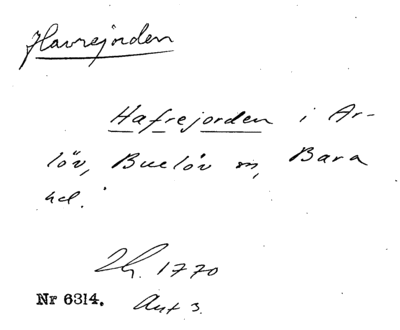 Havrejorden
Hafrejorden i Ar-
löv, Bueløv sn, Bara
hd.
Lh. 1770
Nr 6314. Akt 3.